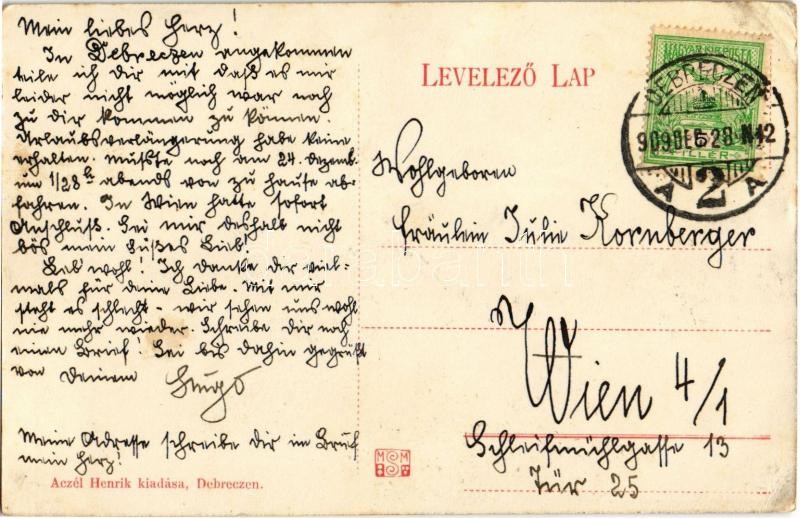 Mein liebes Herz!
In Debreczen angekommen
teile ich dir mit daß es mir
leider nicht möglich war noch
zu dir kommen zu können.
Urlaubsverlängerung habe keine
erhalten. Mußte noch am 24. Dezemb.
um 1/28h abends von zu Hause ab-
fahren. In Wien hatte sofort
Anschluß. Sei mir deshalb nicht
bös mein süßes Lieb!
Leb' wohl! Ich danke dir viel-
mals für deine Liebe. Mit mir
steht es schlecht - wir sehen uns wohl
nie mehr wieder. Schreibe dir noch
einen Brief! Sei bis dahin gegrüßt
von Deinem
Hugo
Meine Adresse schreibe dir im Brief
mein Herz!
Aczél Henrik kiadása, Debreczen.
LEVELEZŐ LAP
MAGYAR KIR. POSTA
FILLÉR
DEBRECZEN
909 DEC 28 N12
A 2 A
Wohlgeboren
Fräulein Kornberger
Wien 4/1
Schleifmühlgasse 13
Tür 25
M M